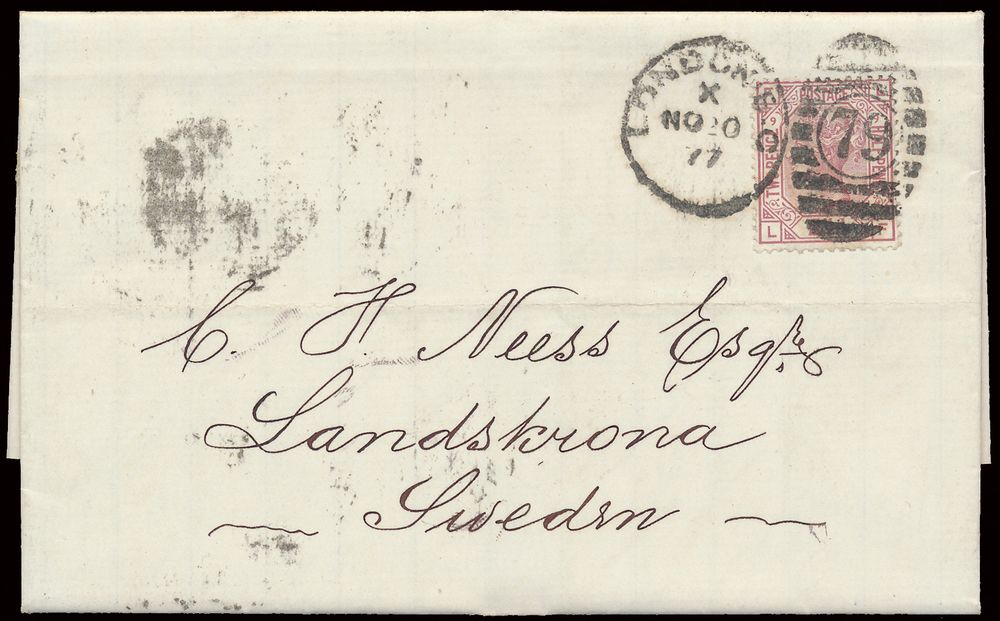 LONDON E C
X
NO 20
77
79
POSTAGE
L
C. H. Neess Esqre
Landskrona
Sweden